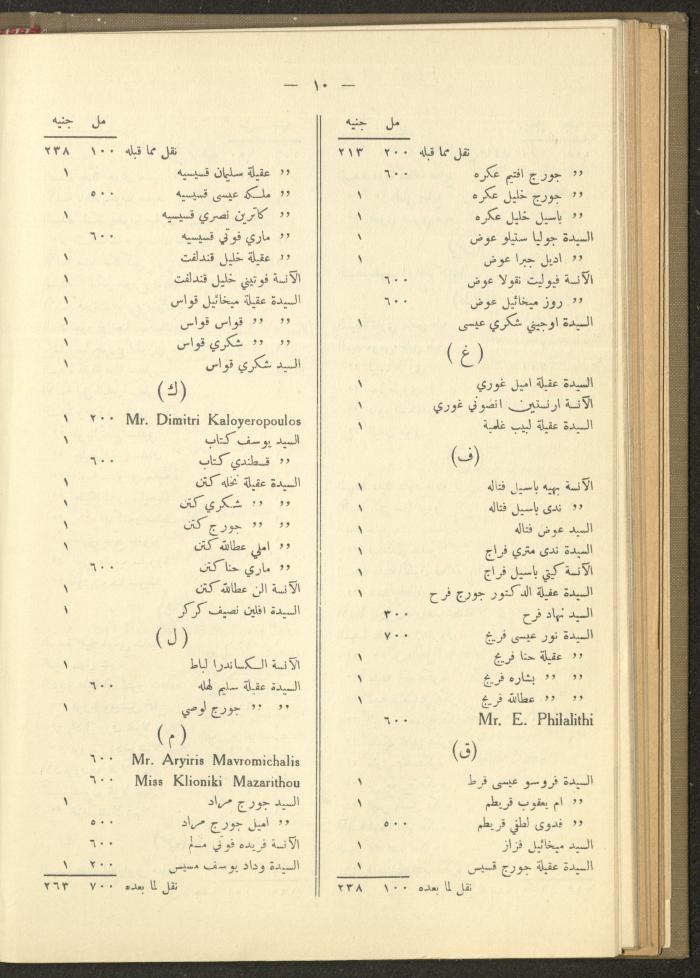 — ١٠ —
مل جنيه
نقل مما قبله ٢٠٠ ٢١٣
״ جورج افتيم عكره ٦٠٠
״ جورج خليل عكره ١
״ باسيل خليل عكره ١
السيدة جوليا ستيلو عوض ١
״ اديل جبرا عوض ١
الآنسة فيوليت نقولا عوض ٦٠٠
״ روز ميخائيل عوض ٦٠٠
السيدة اوجيني شكري عيسى ١
(غ)
السيدة عقيلة اميل غوري ١
الآنسة ارنستين انضوني غوري ١
السيدة عقيلة لبيب غلمية ١
(ف)
الآنسة بهيه باسيل فتاله ١
״ ندى باسيل فتاله ١
السيد عوض فتاله ١
السيدة ندى متري فراج ١
الآنسة كيتي باسيل فراج ١
السيدة عقيلة الدكتور جورج فرح ١
السيد نهاد فرح ٣٠٠
السيدة نور عيسى فريج ٧٠٠
״ عقيلة حنا فريج ١
״ ״ بشاره فريج ١
״ ״ عطالله فريج ١
Mr. E. Philalithi ٦٠٠
(ق)
السيدة فروسو عيسى قرط ١
״ ام يعقوب قريطم ١
״ فدوى لطفي قريطم ٥٠٠
السيد ميخائيل قزاز ١
السيدة عقيلة جورج قسيس ١
نقل لما بعده ١٠٠ ٢٣٨
مل جنيه
نقل مما قبله ١٠٠ ٢٣٨
״ عقيلة سليمان قسيسيه ١
״ ملكه عيسى قسيسيه ٥٠٠
״ كاترين نصري قسيسيه ١
״ ماري فوتي قسيسيه ٦٠٠
״ عقيلة خليل قندلفت ١
الآنسة فوتيني خليل قندلفت ١
السيدة عقيلة ميخائيل قواس ١
״ ״ قواس قواس ١
״ ״ شكري قواس ١
السيد شكري قواس ١
(ك)
Mr. Dimitri Kaloyeropoulos ٢٠٠ ١
السيد يوسف كتاب ١
״ قسطندي كتاب ٦٠٠
السيدة عقيلة نخله كتن ١
״ ״ شكري كتن ١
״ ״ جورج كتن ١
״ املي عطالله كتن ١
״ ماري حنا كتن ٦٠٠
الآنسة الن عطالله كتن ١
السيدة افلين نصيف كركر ١
(ل)
الآنسة الكساندرا لباط ١
السيدة عقيلة سليم لهله ٦٠٠
״ ״ جورج لوصي ١
(م)
Mr. Aryiris Mavromichalis ٦٠٠
Miss Klioniki Mazarithou ٦٠٠
السيد جورج مراد ١
״ اميل جورج مراد ٥٠٠
الآنسة فريده فوتي مسلم ٦٠٠
السيدة وداد يوسف مسيس ٢٠٠ ١
نقل لما بعده ٧٠٠ ٢٦٣